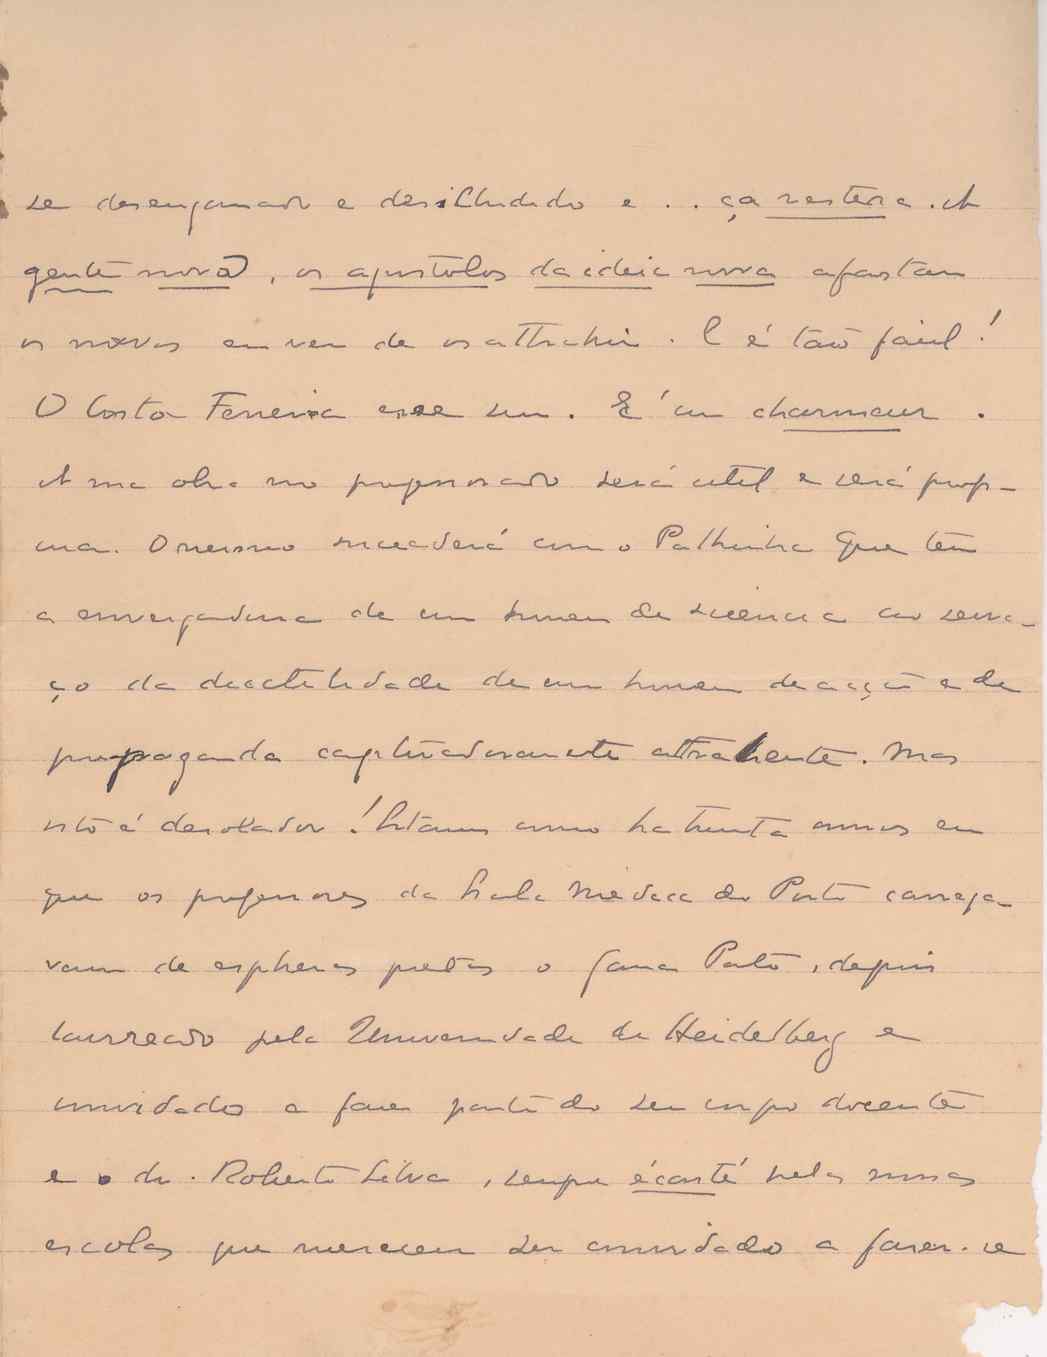 se desenganado e desilludido e . . ça restera . A
gente nova , os apostolos da ideia nova afastam
os novos em vez de os attrahir . E é tão fácil !
O Costa Ferreira esse sim . É um charmeur .
A sua obra no professorado será util e será profi-
cua . O mesmo succederá com o Palhinha que tem
a envergadura de um homem de sciencia ao servi-
ço da deactilidade de um homem de acção e de
propaganda captivadoramente attrahente . Mas
isto é desolador ! Estamos como ha trinta annos em
que os professores da Escola Medica do Porto carrega-
vam de espheras pretas o Gama Pato , depois
laureado pela Universidade de Heidelberg e
convidado a fazer parte do seu corpo docente
e o dr . Roberto Silva , sempre écarté pelas nossas
escolas que mereceu ser convidado a fazer - se